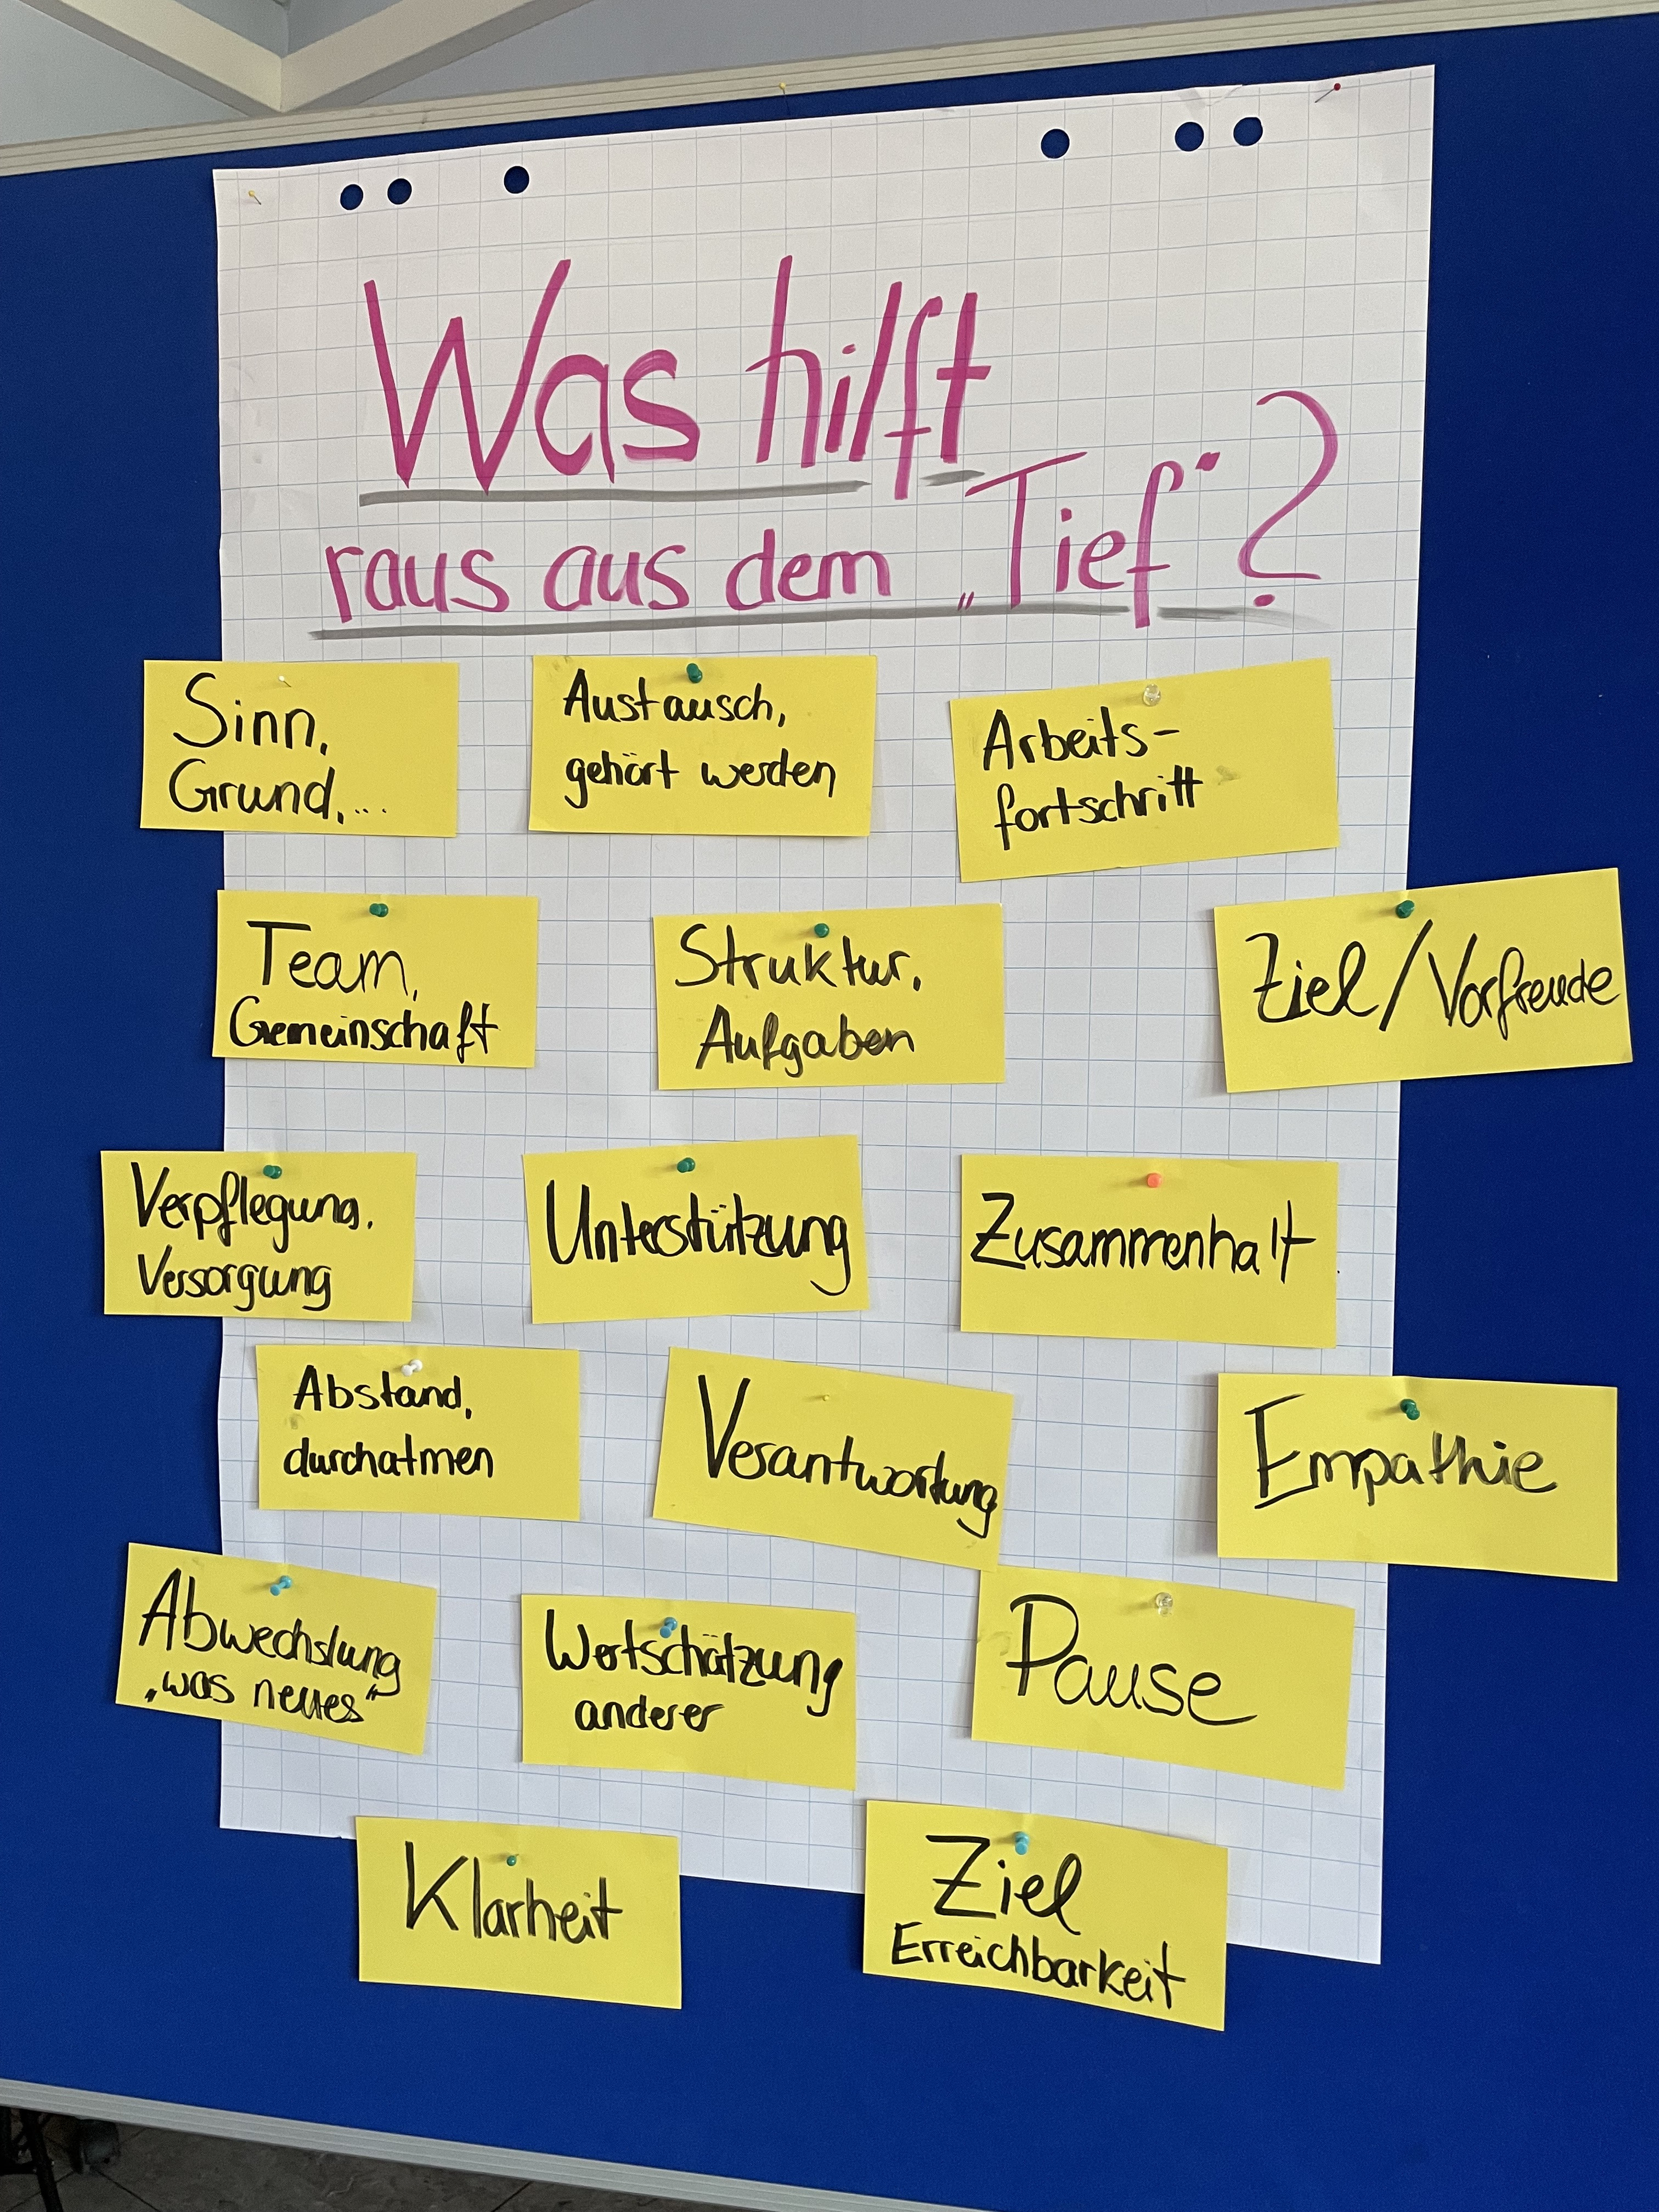 Was hilft
raus aus dem „Tief" ?
Sinn,
Grund,...
Austausch,
gehört werden
Arbeits-
fortschritt
Team,
Gemeinschaft
Struktur,
Aufgaben
Ziel/Vorfreude
Verpflegung,
Versorgung
Unterstützung
Zusammenhalt
Abstand,
durchatmen
Verantwortung
Empathie
Abwechslung
„was neues"
Wertschätzung
anderer
Pause
Klarheit
Ziel
Erreichbarkeit